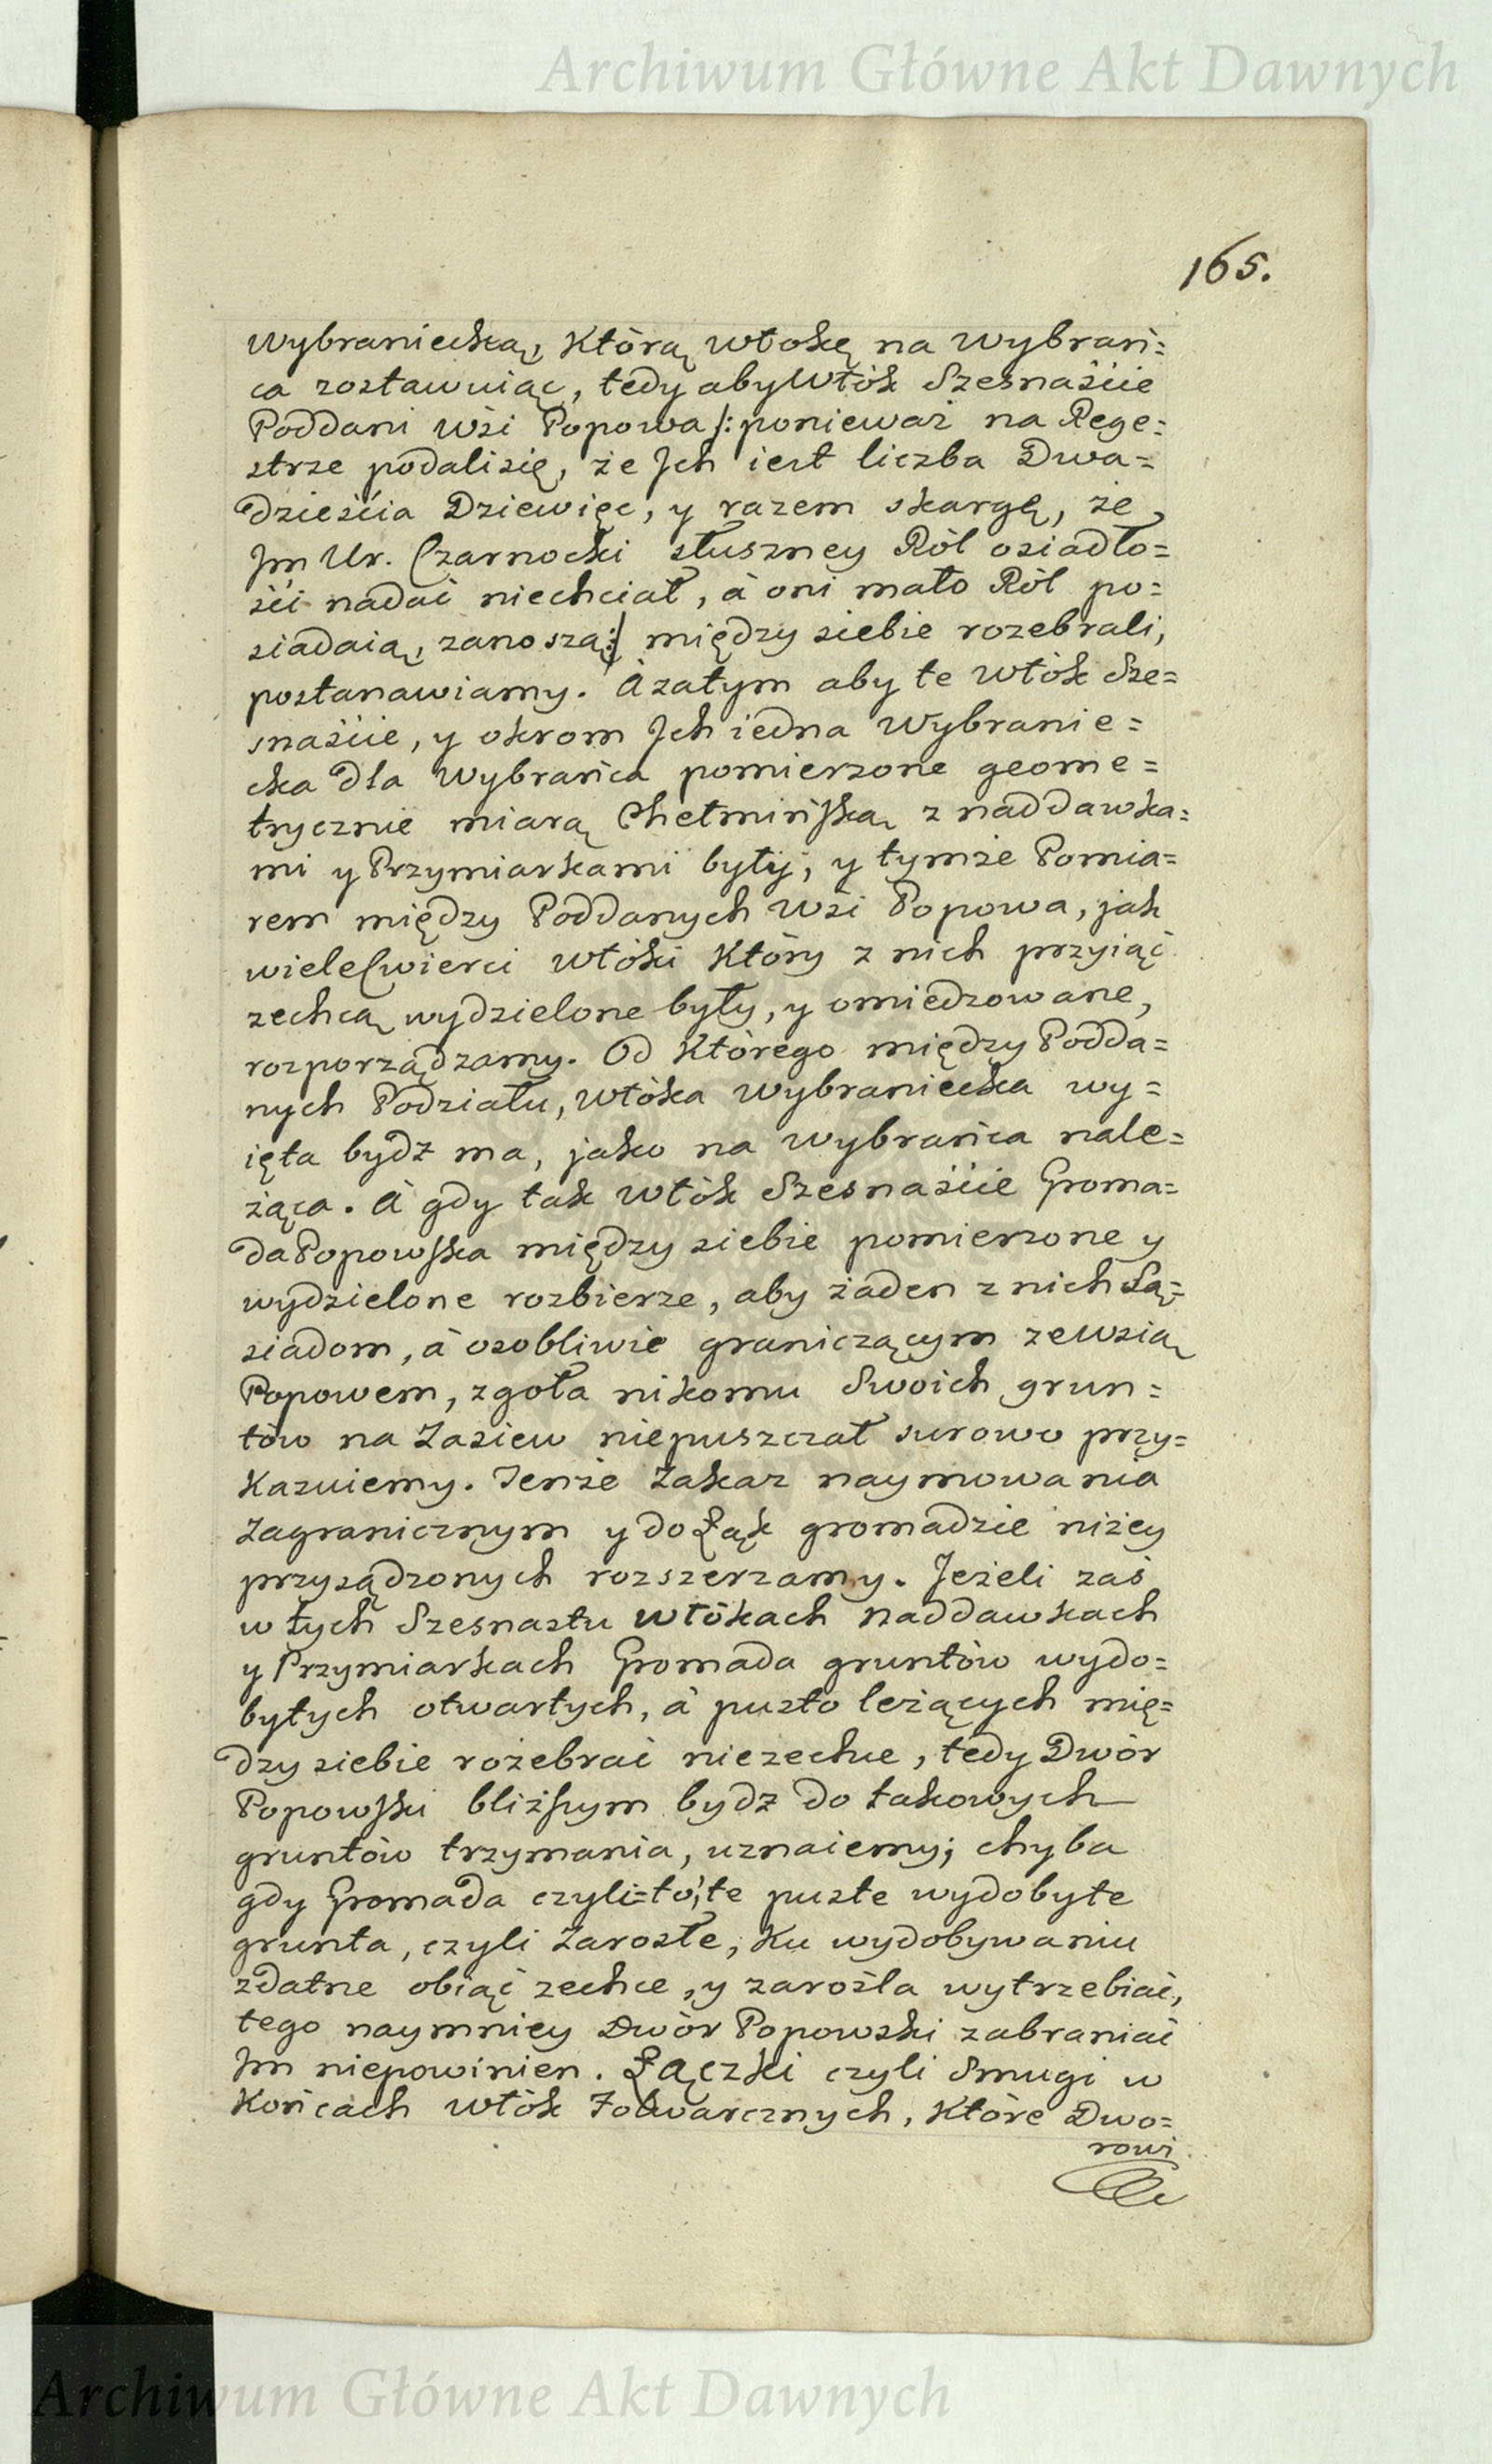 Archiwum Główne Akt Dawnych
165.
wybraniecką, Którą włokę na Wybrań=
ca zostawuiąc, tedy aby Włók Szesnaście
Poddani Wsi Popowa /: ponieważ na Rege=
strze podali się, że Jch iest liczba Dwa=
dzieścia Dziewięc, y razem skargę, że
Jm Ur. Czarnocki słuszney Ról osiadło=
ści nadać niechciał, à oni mało Ról po=
siadaią, zanoszą :/ między siebie rozebrali,
postanawiamy. À zatym aby te Włók Sze=
snaście, y okrom Jch iedna Wybranie=
cka dla Wybrańca pomierzone geome=
trycznie miarą Chełmińską z naddawka=
mi y Przymiarkami były, y tymże Pomia=
rem między Poddanych Wsi Popowa, jak
wiele Cwierci włóki Który z nich przyiąć
zechcą wydzielone były, y omiedzowane,
rozporządzamy. Od Którego między Podda=
nych Podziału, włóka Wybraniecka wy=
ięta bydz ma, jako na wybrańca nale=
żąca. À gdy tak Włók Szesnaście Groma=
da Popowska między siebie pomierzone y
wydzielone rozbierze, aby żaden z nich Są=
siadom, à osobliwie graniczącym ze wsią
Popowem, zgoła nikomu Swoich grun=
tów na Zasiew niepuszczał surowo przy=
Kazuiemy. Tenże Zakaz naymowania
Zagranicznym y do Łąk gromadzie niżey
przysądzonych rozszerzamy. Jeżeli zaś
w tych Szesnastu Włókach Naddawkach
y Przymiarkach Gromada gruntów wydo=
bytych otwartych, à pusto leżących mię=
dzy siebie rozebrać niezechce, tedy Dwór
Popowski bliższym bydz do takowych
gruntów trzymania, uznaiemy; chyba
gdy Gromada czyli=to, te puste wydobyte
grunta, czyli Zarosłe, Ku wydobywaniu
zdatne obiąć zechce, y zarośla wytrzebiać,
tego naymniey Dwór Popowski zabraniać
Jm niepowinien. Łączki czyli Smugi w
Końcach Włók Folwarcznych, Które Dwo=
rowi
Archiwum Główne Akt Dawnych